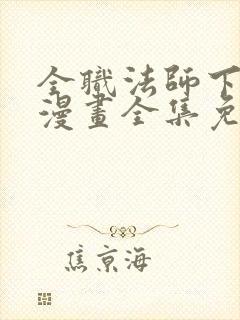 全職法師下
漫畫全集免
焦京海